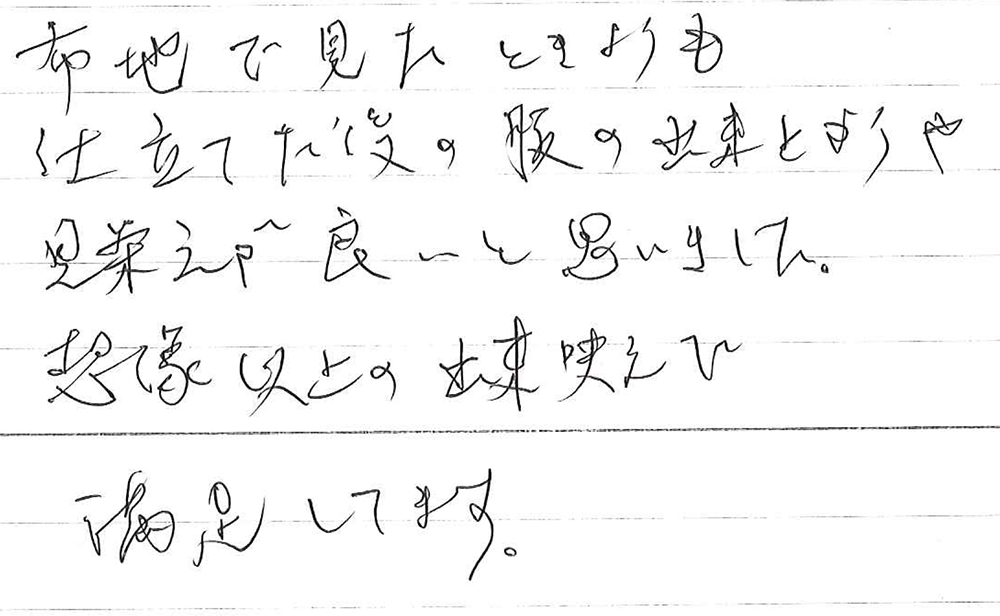 布地で見たときよりも
仕立てた後の服の出来上がりや
見栄えが良いと思いました。
想像以上の出来映えで
満足してます。